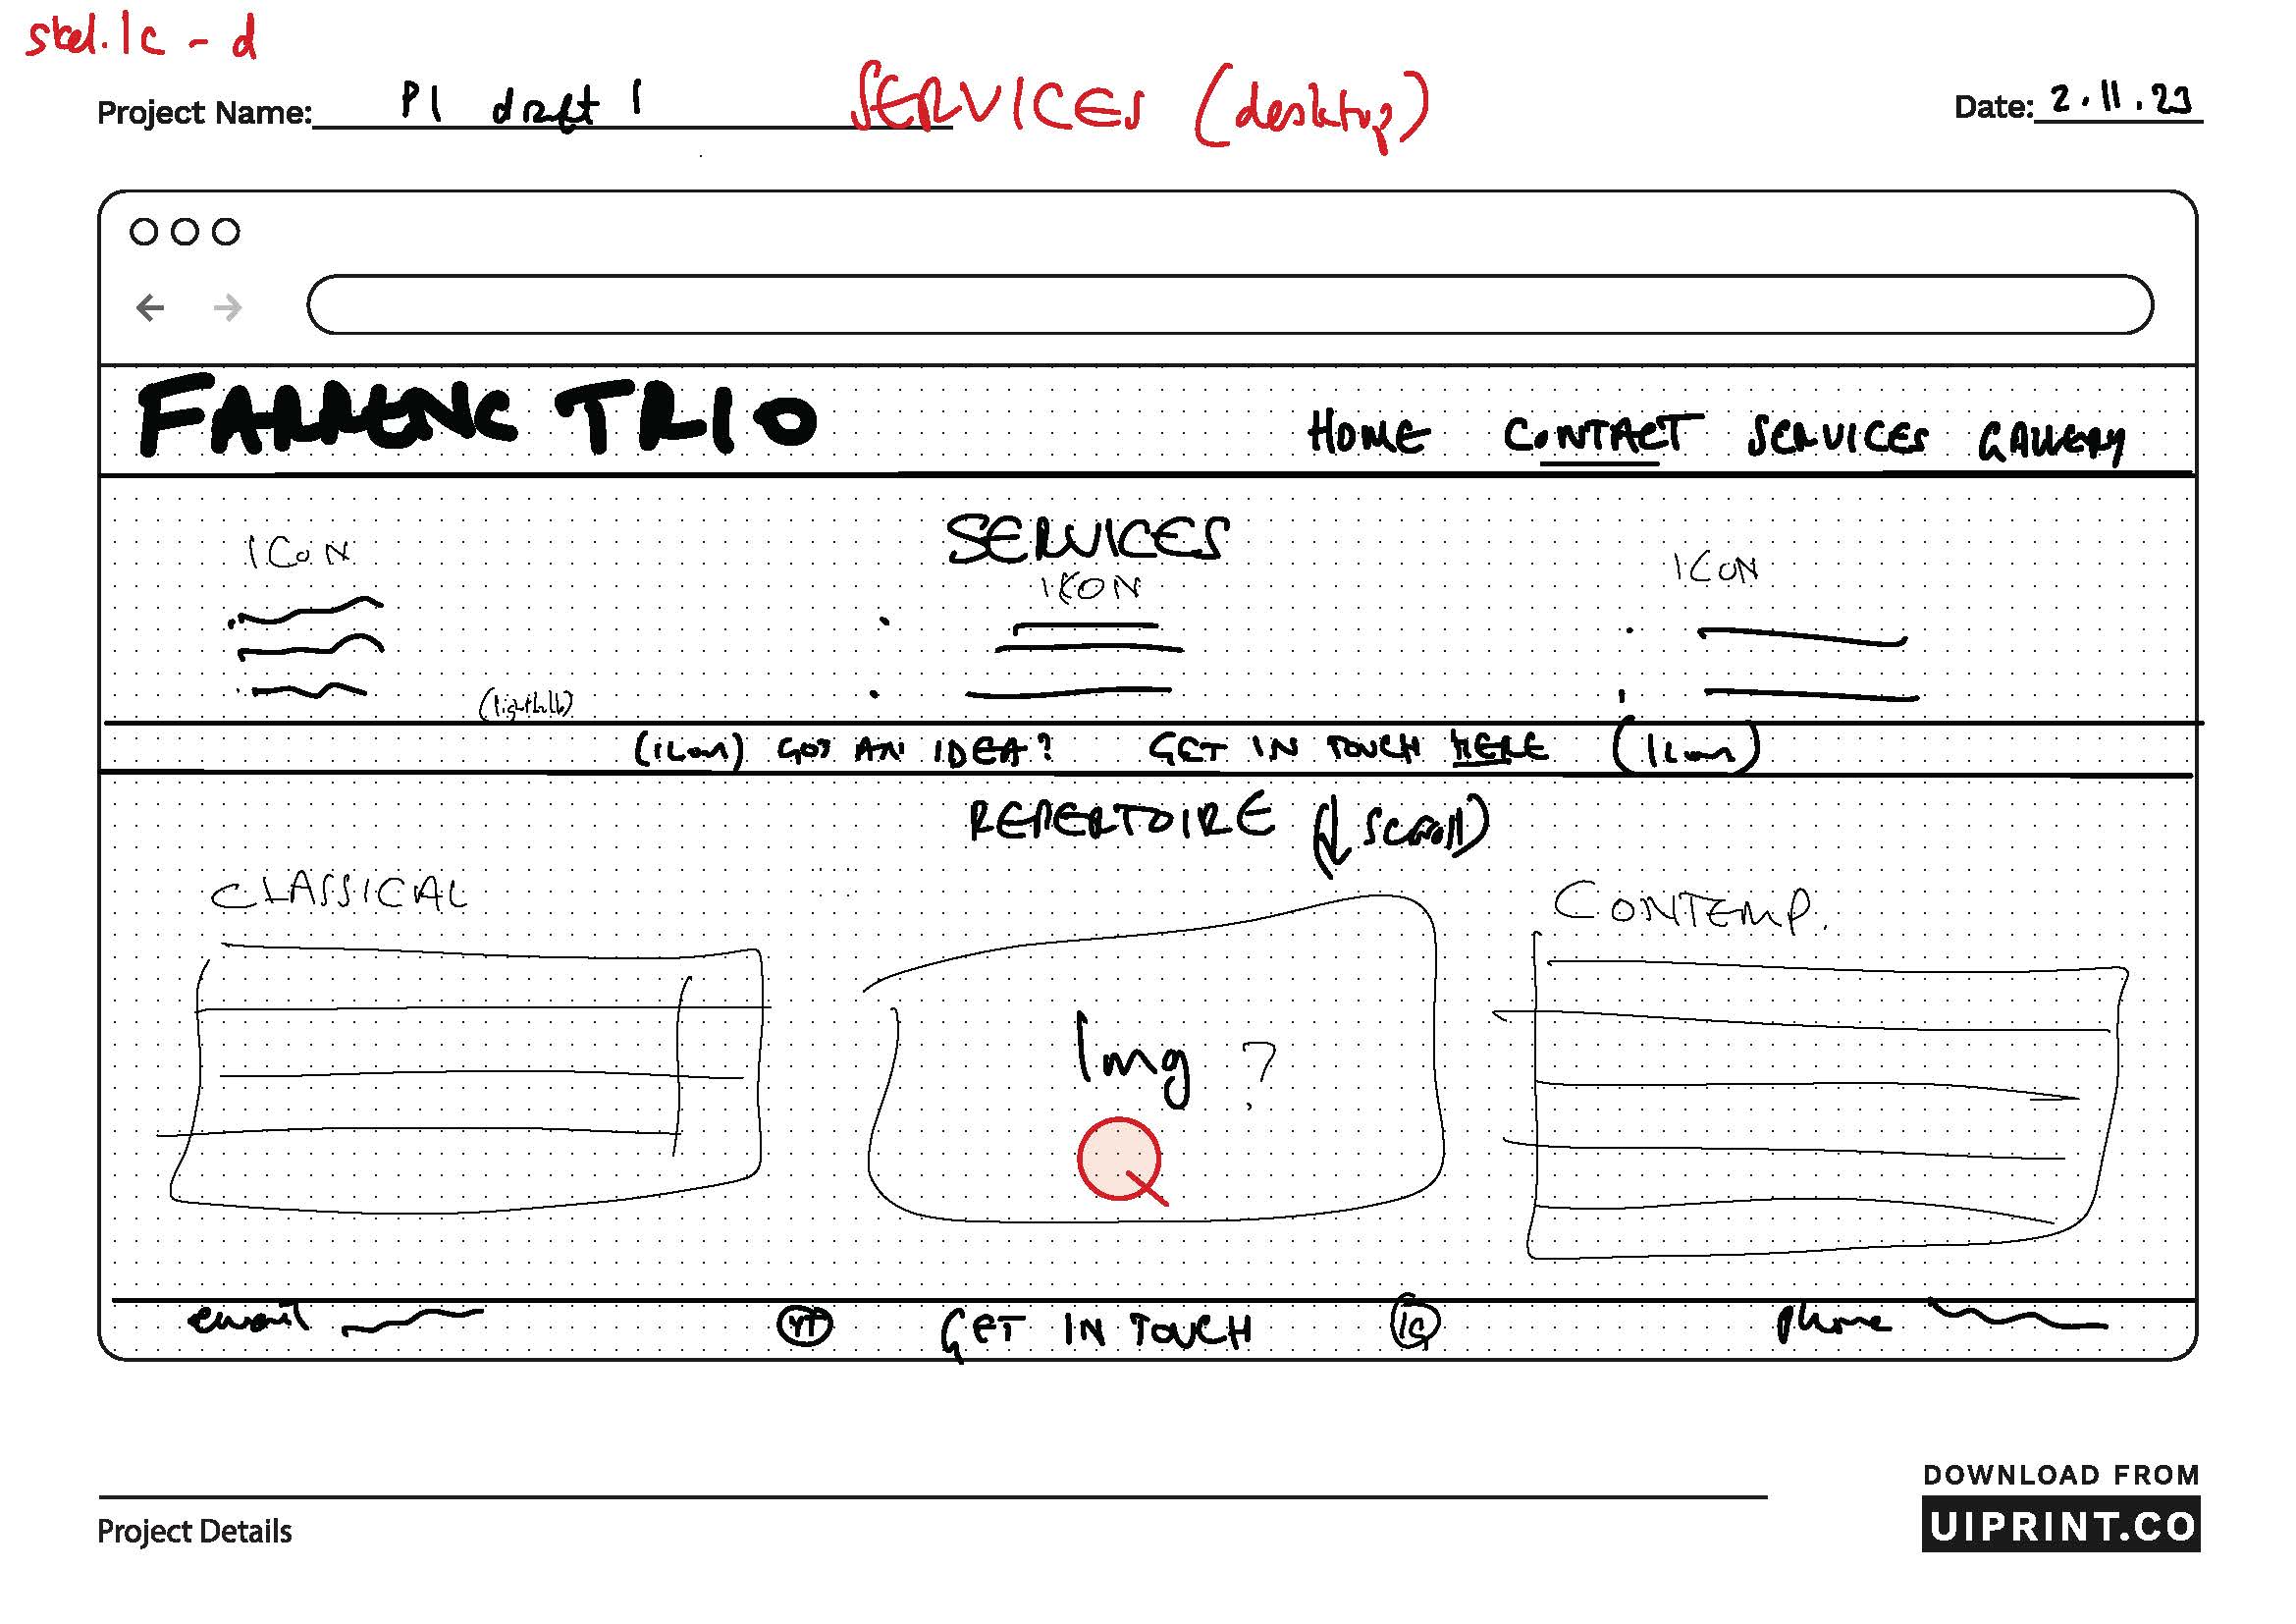 skel.1c - d
Project Name: P1 draft 1 SERVICES (desktop)
Date: 2.11.23
FARRENC TRIO
HOME CONTACT SERVICES GALLERY
SERVICES
ICON ICON ICON
(lightbulb)
(icon) GOT AN IDEA? GET IN TOUCH HERE (icon)
REPERTOIRE (↓ scroll)
CLASSICAL CONTEMP.
Img ?
email YT GET IN TOUCH IG phone
DOWNLOAD FROM
UIPRINT.CO
Project Details